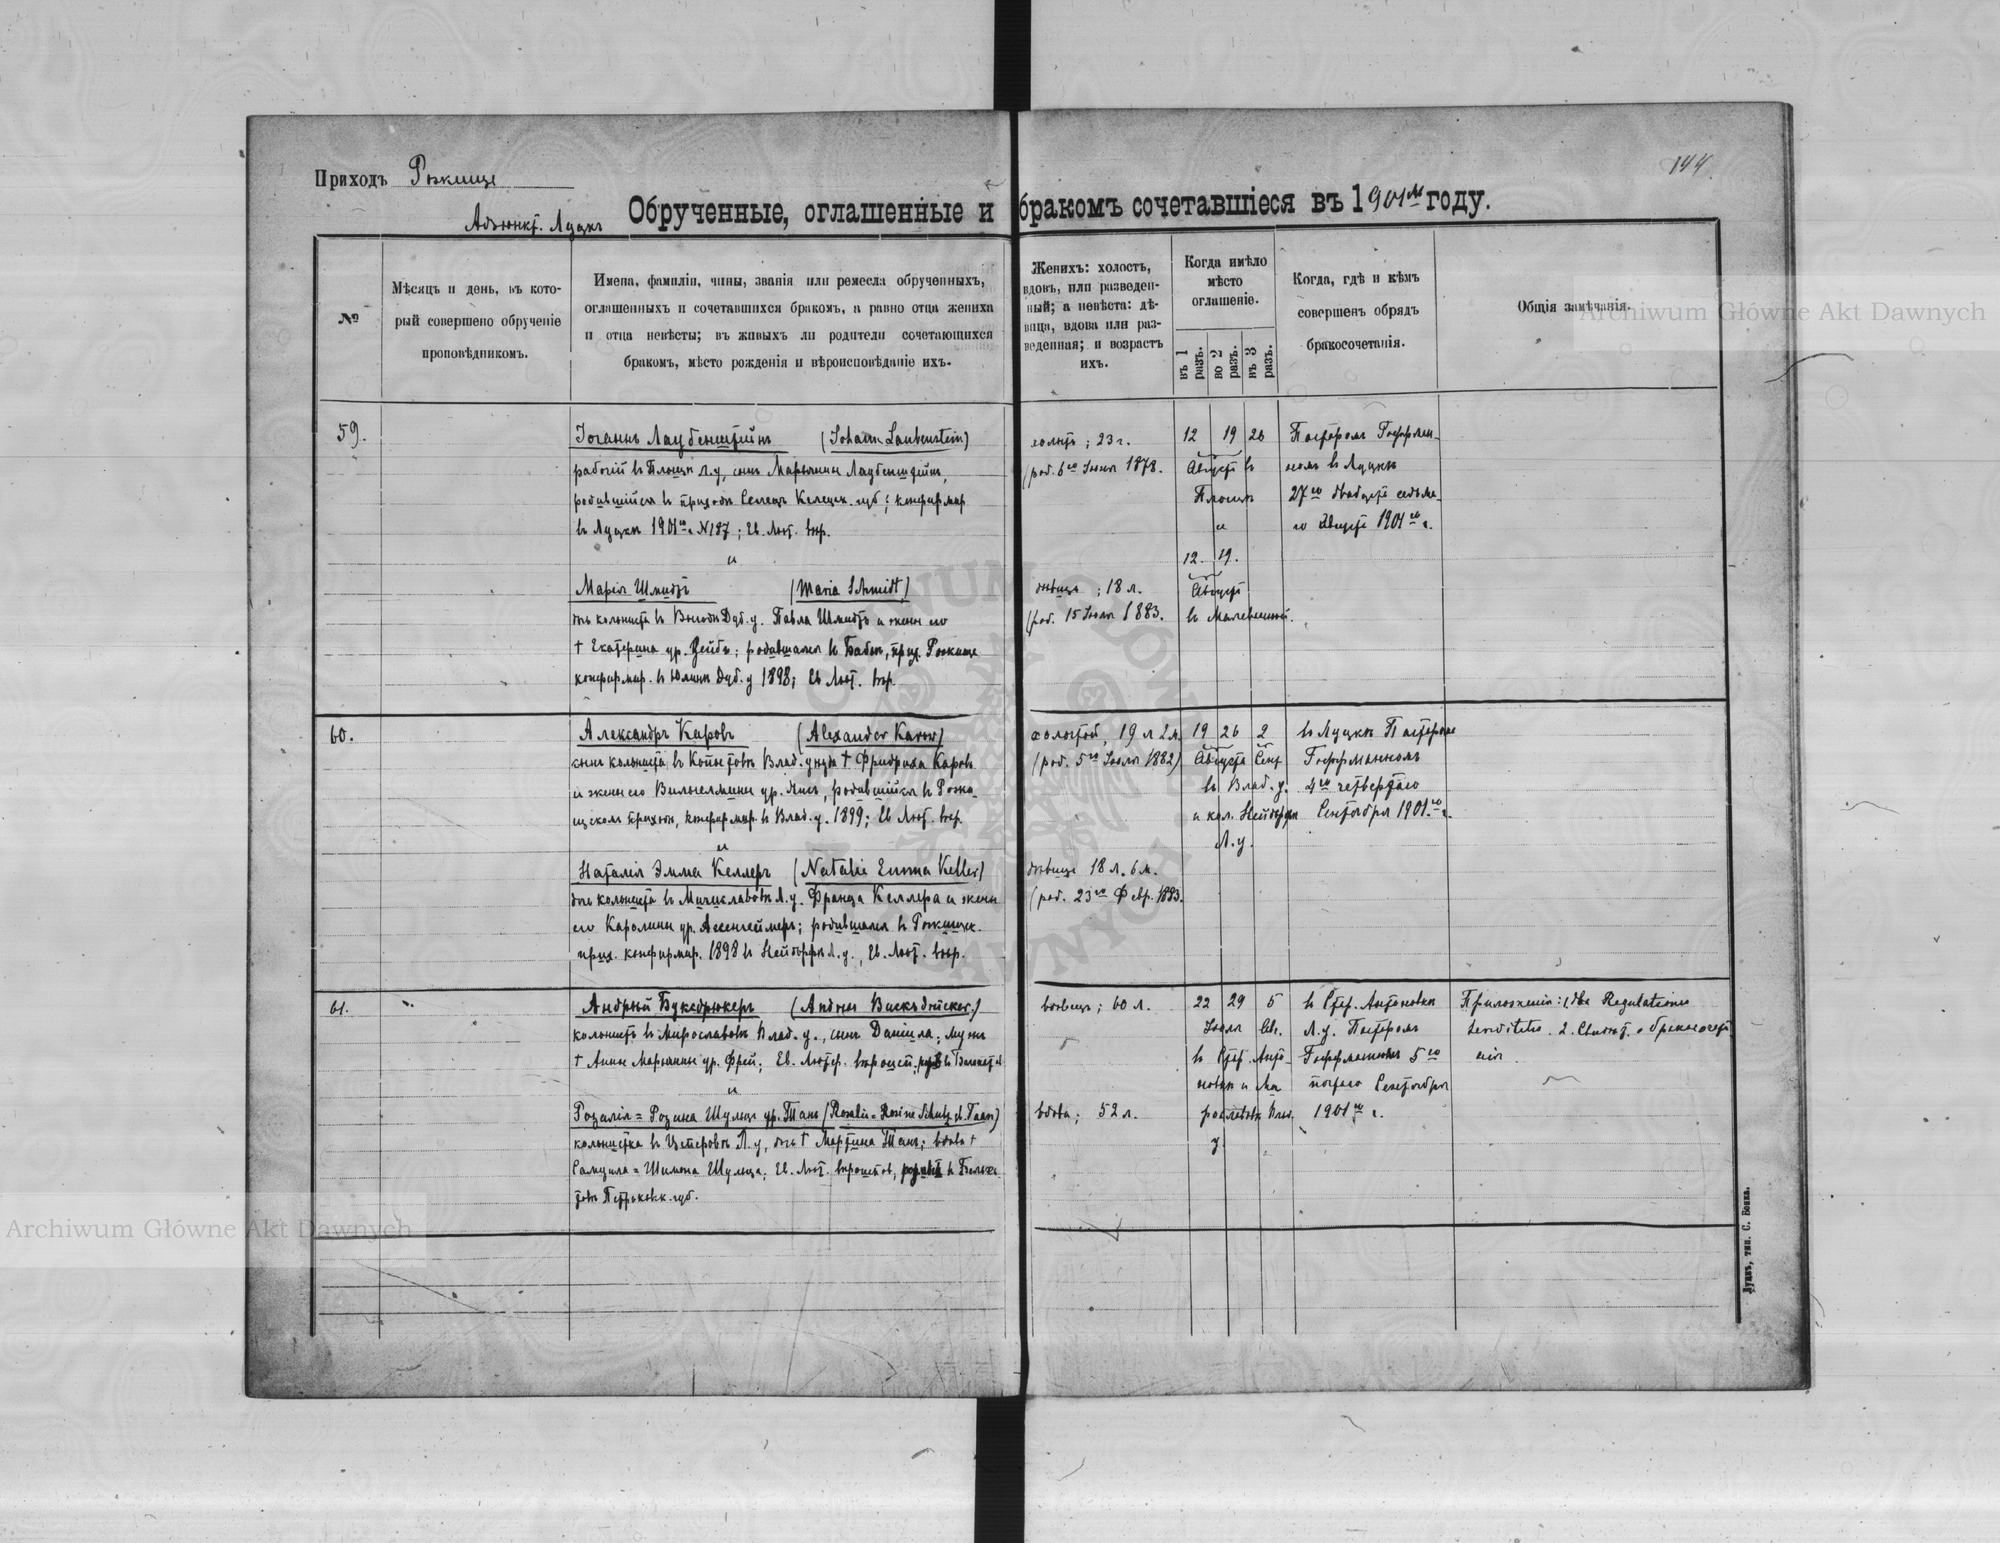 144
Приходъ Рожище
Адъюнкт. Луцкъ
Обрученные, оглашенные и бракомъ сочетавшіеся въ 1901м году.
№
Мѣсяцъ и день, въ кото-
рый совершено обрученіе
проповѣдникомъ.
Имена, фамиліи, чины, званія или ремесла обрученныхъ,
оглашенныхъ и сочетавшихся бракомъ, а равно отца жениха
и отца невѣсты; въ живыхъ ли родители сочетающихся
бракомъ, мѣсто рожденія и вѣроисповѣданіе ихъ.
Женихъ: холостъ,
вдовъ, или разведен-
ный; а невѣста: дѣ-
вица, вдова или раз-
веденная; и возрастъ
ихъ.
Когда имѣло
мѣсто
оглашеніе.
въ 1 разъ.
во 2 разъ.
въ 3 разъ.
Когда, гдѣ и кѣмъ
совершенъ обрядъ
бракосочетанія.
Общія замѣчанія.
59.
Іоганнъ Лаубенштейнъ (Johann Laubenstein)
рабочій въ Л.у, сынъ Маріанны Лаубенштейнъ,
родившійся въ приходѣ Келецк. губ; конфирмир
въ Луцкѣ 1901го N187; Ев. Лют. вѣр.
и
Марія Шмидтъ (Maria Schmidt)
дчь колониста въ Дуб. у. Павла Шмидтъ и жены его
† Екатерина ур. ; родившаяся въ прих. Рожище
конфирмир. въ Дуб. у 1898; Ев. Лют. вѣр.
холостъ; 23 г.
(род. 6го Іюня 1878.
дѣвица; 18 л.
(род. 15 Іюля 1883.
12 19 26
Августа въ
и
12. 19.
Августа
въ
Пасторомъ Гоффман-
номъ въ Луцкѣ
27го двадцать седьма-
го Августа 1901го г.
60.
Александръ Каровъ (Alexander Karow)
сынъ колониста въ Влад. уѣзда † Фридриха Каровъ
и жены его Вильгелмины ур. , родившійся въ Рожи-
щскомъ приходѣ, конфирмир. въ Влад. у. 1899; Ев. Лют. вѣр.
и
Наталія Эмма Келлеръ (Natalie Emma Keller)
дчь колониста въ Мечиславовкѣ Л. у. Франца Келлера и жены
его Каролины ур. ; родившаяся въ Рожищск.
прих. конфирмир. 1898 въ Нейдорфѣ Л. у., Ев. Лют. вѣр.
холостой, 19 л 2 м.
(род. 5го Іюля 1882)
дѣвица 18 л. 6 м.
(род. 23го Февр. 1883.
19 26 2
Августа Сент
въ Влад. у.
и кол. Нейдорфъ
Л. у.
въ Луцкѣ Пасторомъ
Гоффманномъ
4го четвертаго
Сентября 1901го г.
61.
Андрей Буксдрюкеръ
колонистъ въ Мирославовкѣ Влад. у., сынъ Даніила; мужъ
† Анны Маріанны ур. Фрей; Ев. Лютер.
и
Розалія = Розина Шульцъ ур. Танъ (Rosalie = Rosine Schulz geb. Taan)
колонистка въ Л. у, дчь † Мартина Танъ; вдова †
Самуила = Шимона Шульца; Ев. Лют.
Петроковск. губ.
вдовецъ; 60 л.
вдова; 52 л.
22 29 5
Іюля Сен.
въ Стар. Анто-
новкѣ и Ми
рославовкѣ Влад.
у
въ Стар. Антоновкѣ
Л. у. Пасторомъ
Гоффманномъ 5го
пятаго Сентября
1901го г.
Приложенія:
Луцкъ, тип. С. Бонка.
Archiwum Główne Akt Dawnych
Archiwum Główne Akt Dawnych